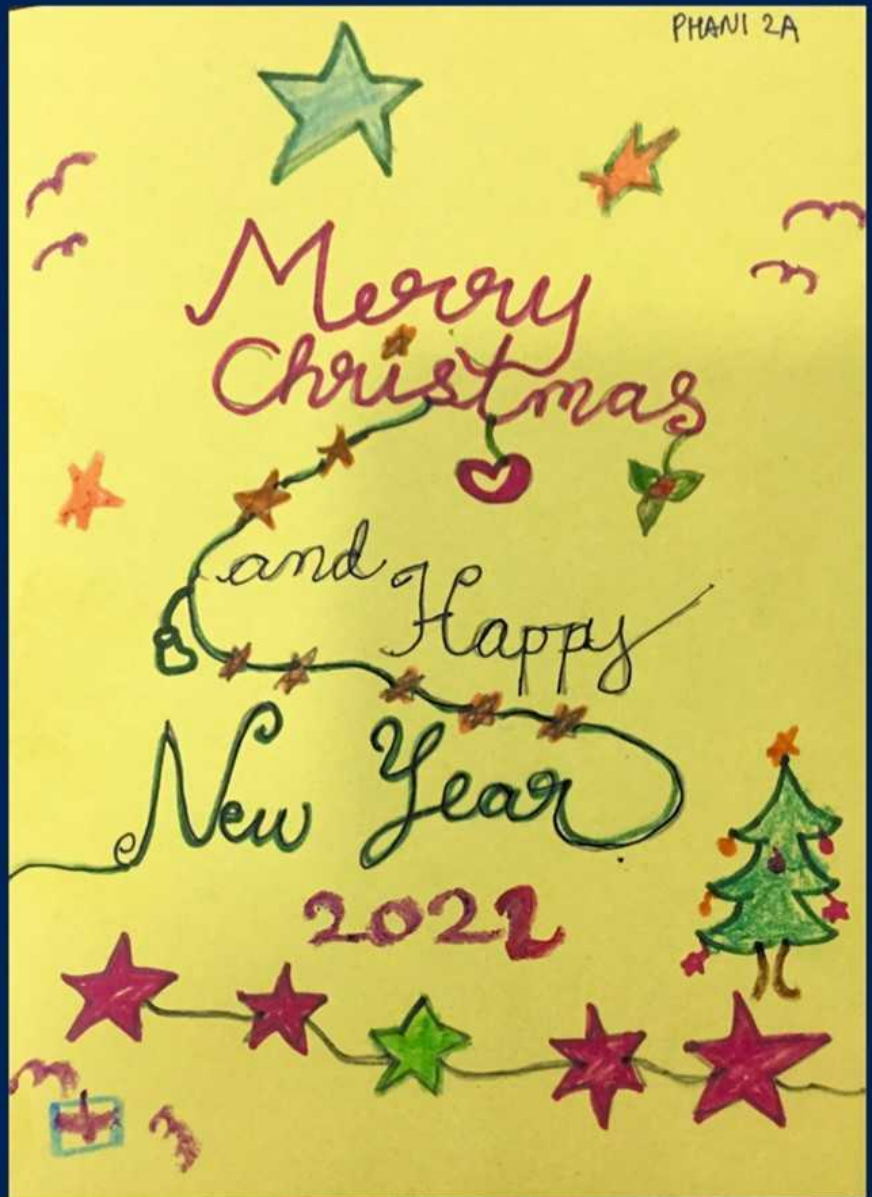 PHANI 2A
Merry
Christmas
and Happy
New Year
2022